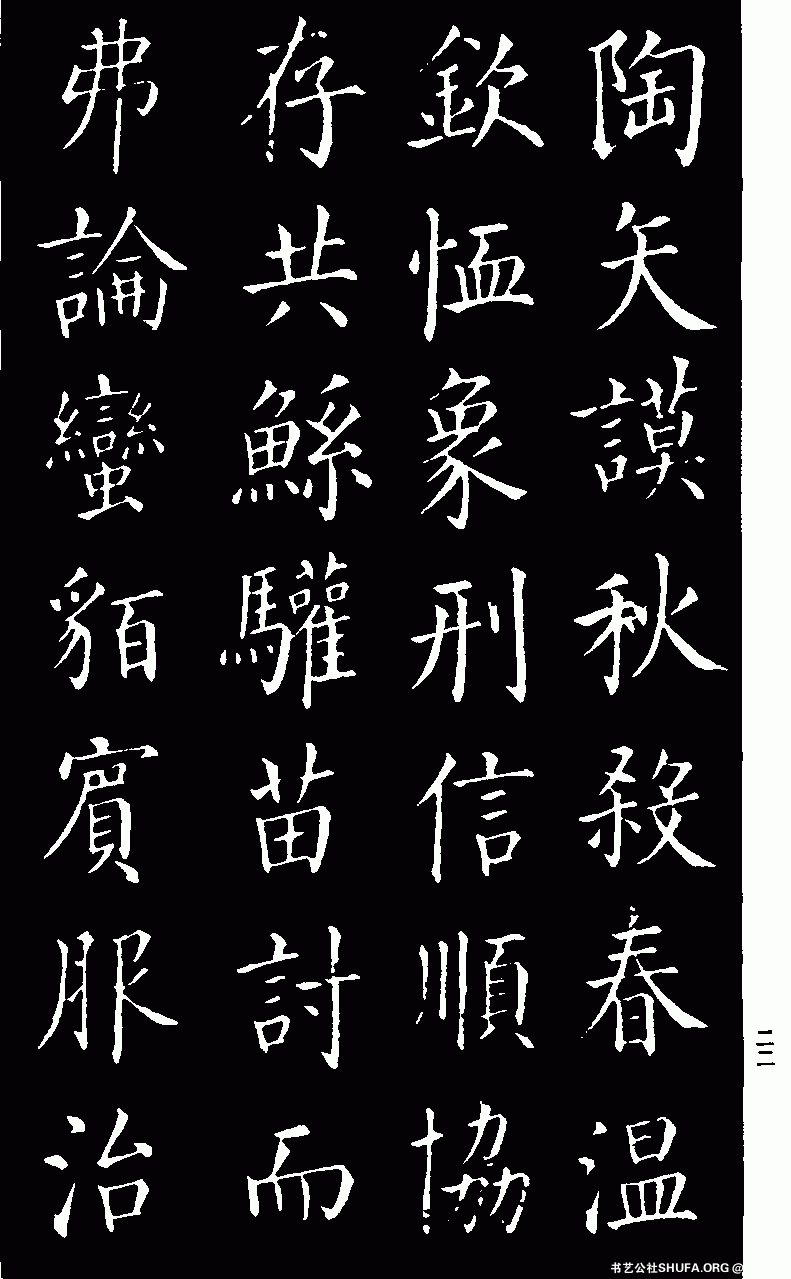 陶矢謨秋殺春温
欽恤象刑信順協
存共鯀驩苗討而
弗論蠻貊賓服治
二二
书艺公社SHUFA.ORG @